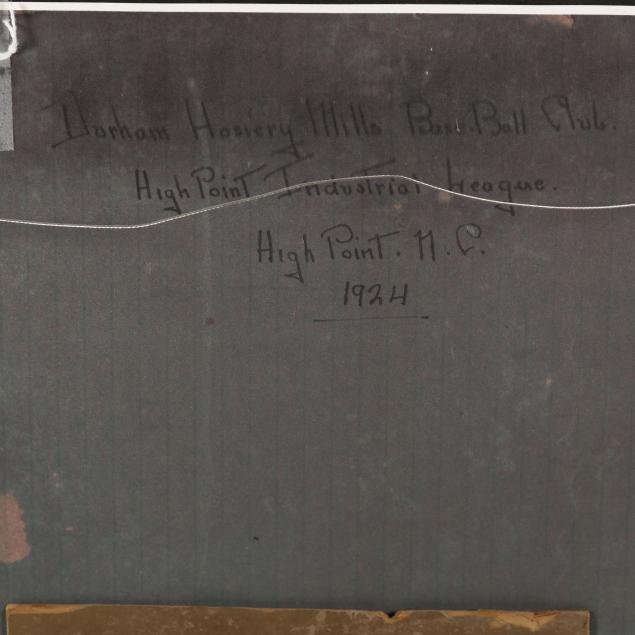 Durham Hosiery Mills Base.Ball Club.
High Point Industrial League.
High Point. N.C.
1924